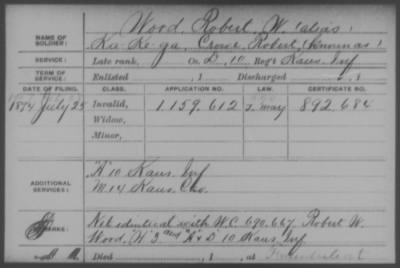 NAME OF SOLDIER: Wood, Robert W. (alias)
Ka-Ke-ga, Crowe, Robert, (known as)
SERVICE: Late rank, Co. D, 10 Reg't Kans. Inf
TERM OF SERVICE: Enlisted , 1 Discharged , 1
DATE OF FILING. CLASS. APPLICATION NO. LAW. CERTIFICATE NO.
1894 July 25 Invalid, 1.159.612 May 892.684
Widow,
Minor,
ADDITIONAL SERVICES: "A" 10 Kans. Inf
M 14 Kans. Cav.
REMARKS: Not identical with W.C. 690.667. Robert W.
Wood, "H" 3rd and "A & D" 10 Kans. Inf
Died , 1 , at